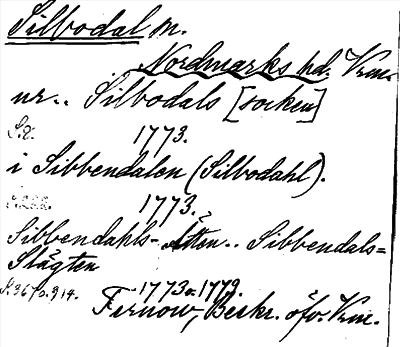 Silbodal sn.
Nordmarks hd. Vrm.
ur.. Silbodals [socken]
S.2. 1773.
i Sibbendalen (Silbodahl).
S.222. 1773.
Sibbendahls-Ätten.. Sibbendals=
Slägten
S.367o.914. 1773o.1779.
Fernow, Beskr. öfv. Vrm.